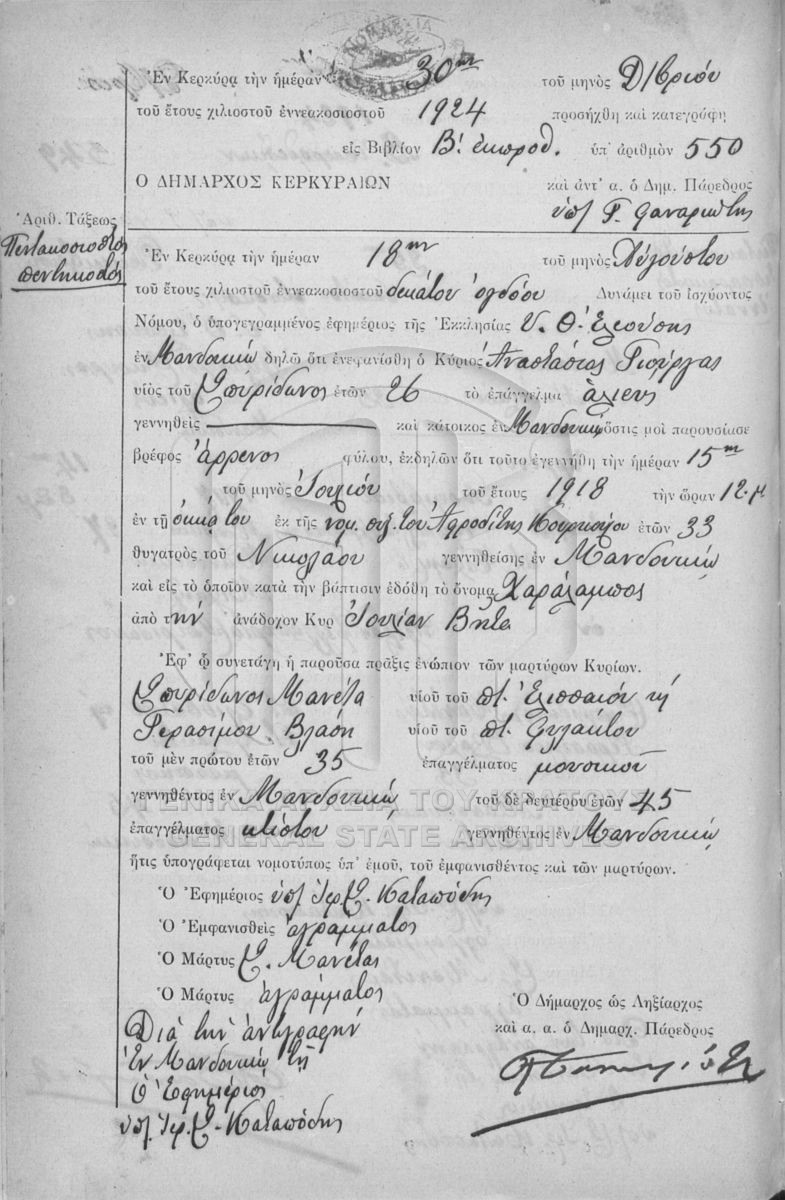 ΝΟΜΑΡΧΙΑ
Ἐν Κερκύρᾳ τὴν ἡμέραν 30ην τοῦ μηνὸς Δ/βρίου
τοῦ ἔτους χιλιοστοῦ ἐννεακοσιοστοῦ 1924 προσήχθη καὶ κατεγράφη
εἰς Βιβλίον Β! ἐκπροθ. ὑπ' ἀριθμὸν 550
Ο ΔΗΜΑΡΧΟΣ ΚΕΡΚΥΡΑΙΩΝ καὶ ἀντ' α. ὁ Δημ. Πάρεδρος
ὑπ/ Γ. Φαναριώτης
Ἀριθ. Τάξεως
Πεντακοσιοστὸς
πεντηκοστός
Ἐν Κερκύρᾳ τὴν ἡμέραν 18ην τοῦ μηνὸς Αὐγούστου
τοῦ ἔτους χιλιοστοῦ ἐννεακοσιοστοῦ δεκάτου ὀγδόου Δυνάμει τοῦ ἰσχύοντος
Νόμου, ὁ ὑπογεγραμμένος ἐφημέριος τῆς Ἐκκλησίας Υ. Θ. Ἐλεούσης
ἐν Μανδουκίῳ δηλῶ ὅτι ἐνεφανίσθη ὁ Κύριος Ἀναστάσιος Γιούργας
υἱὸς τοῦ Σπυρίδωνος ἐτῶν 26 τὸ ἐπάγγελμα ἁλιεὺς
γεννηθεὶς καὶ κάτοικος ἐν Μανδουκίῳ ὅστις μοὶ παρουσίασε
βρέφος ἄρρενος φύλου, ἐκδηλῶν ὅτι τοῦτο ἐγεννήθη τὴν ἡμέραν 15ην
τοῦ μηνὸς Ἰουλίου τοῦ ἔτους 1918 τὴν ὥραν 12.μ
ἐν τῇ οἰκίᾳ του ἐκ τῆς νομ. συζ. του Ἀφροδίτης ἐτῶν 33
θυγατρὸς τοῦ Νικολάου γεννηθείσης ἐν Μανδουκίῳ
καὶ εἰς τὸ ὁποῖον κατὰ τὴν βάπτισιν ἐδόθη τὸ ὄνομα Χαράλαμπος
ἀπὸ τὴν ἀνάδοχον Κυρ Ἰουλίαν Βήτα
Ἐφ' ᾧ συνετάγη ἡ παροῦσα πρᾶξις ἐνώπιον τῶν μαρτύρων Κυρίων.
Σπυρίδωνος Μανέτα υἱοῦ τοῦ ποτ. Ἐλισσαίου κ
Γερασίμου Βλάση υἱοῦ τοῦ ποτ. Φυλάκτου
τοῦ μὲν πρώτου ἐτῶν 35 ἐπαγγέλματος μουσικοῦ
γεννηθέντος ἐν Μανδουκίῳ τοῦ δὲ δευτέρου ἐτῶν 45
ΓΕΝΙΚΑ ΑΡΧΕΙΑ ΤΟΥ ΚΡΑΤΟΥΣ
ἐπαγγέλματος κτίστου γεννηθέντος ἐν Μανδουκίῳ
GENERAL STATE ARCHIVES
ἥτις ὑπογράφεται νομοτύπως ὑπ' ἐμοῦ, τοῦ ἐμφανισθέντος καὶ τῶν μαρτύρων.
Ὁ Ἐφημέριος ὑπ/ Ἱερ. Σ. Καταπόδης
Ὁ Ἐμφανισθεὶς ἀγράμματος
Ὁ Μάρτυς Σ. Μανέτας
Ὁ Μάρτυς ἀγράμματος
Ὁ Δήμαρχος ὡς Ληξίαρχος
καὶ α. α. ὁ Δημαρχ. Πάρεδρος
Διὰ τὴν ἀντιγραφὴν
Ἐν Μανδουκίῳ τῇ
Ὁ Ἐφημέριος
ὑπ/ Ἱερ. Σ. Καταπόδης